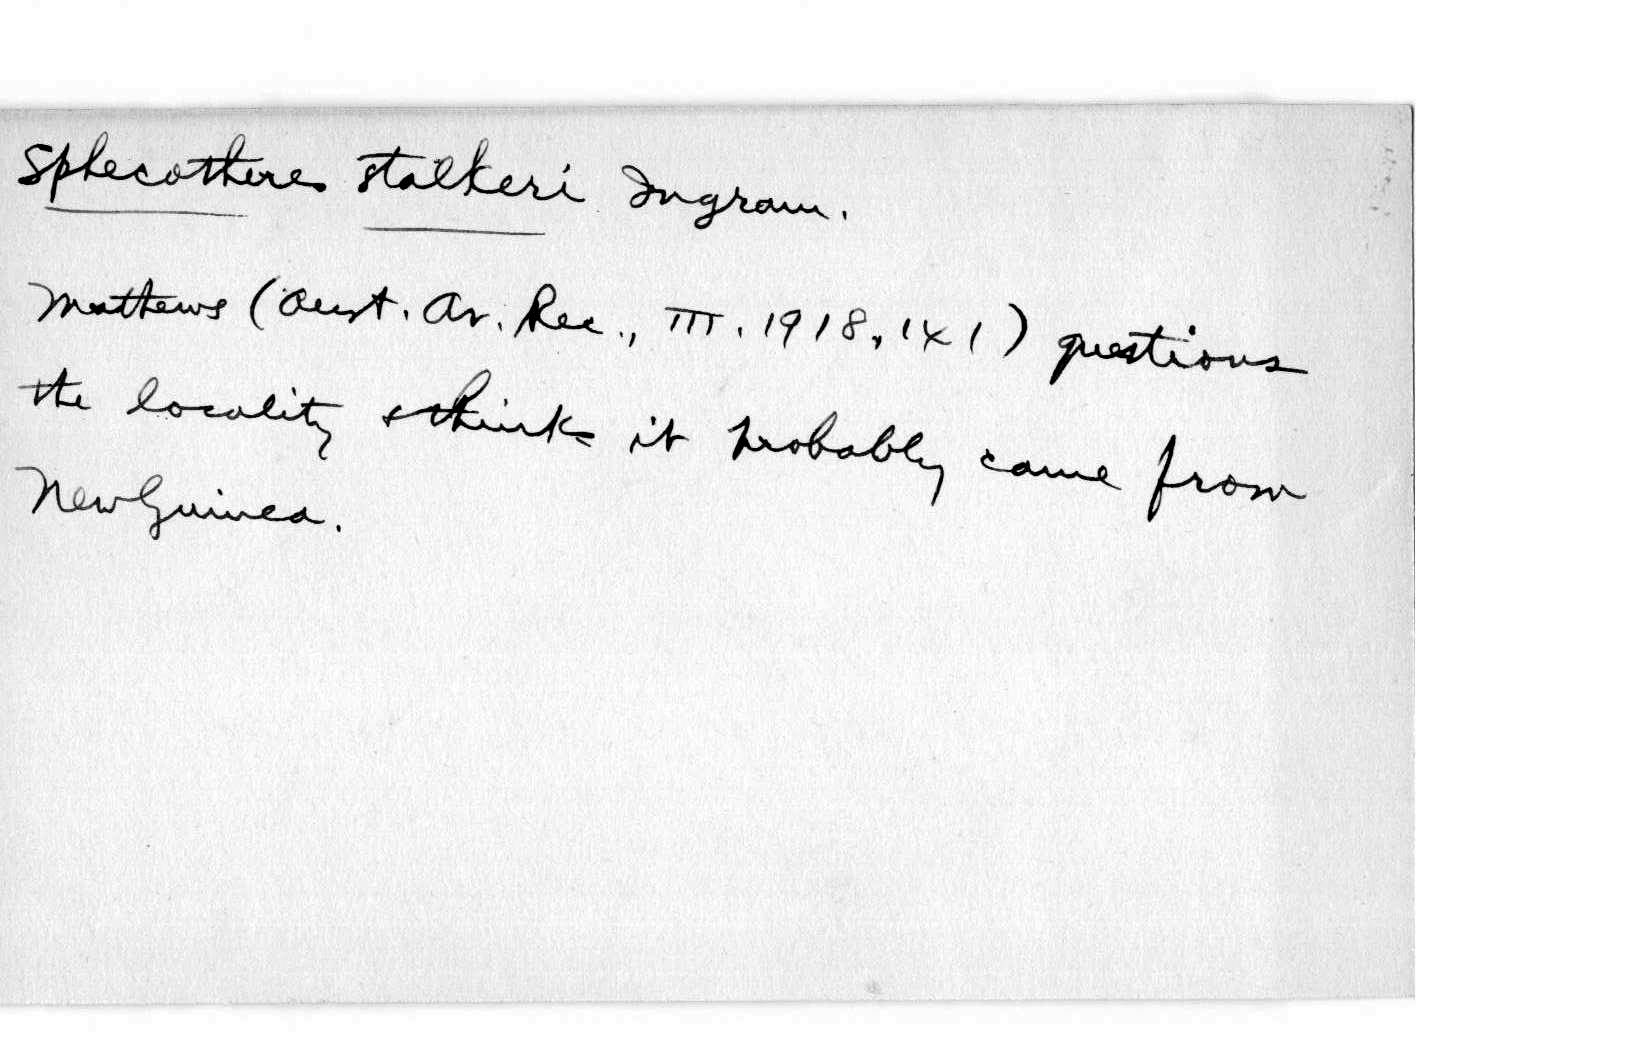 Sphecotheres stalkeri Ingram.
Mathews (Aust. Av. Rec., III. 1918, 141) questions
the locality & thinks it probably came from
New Guinea.